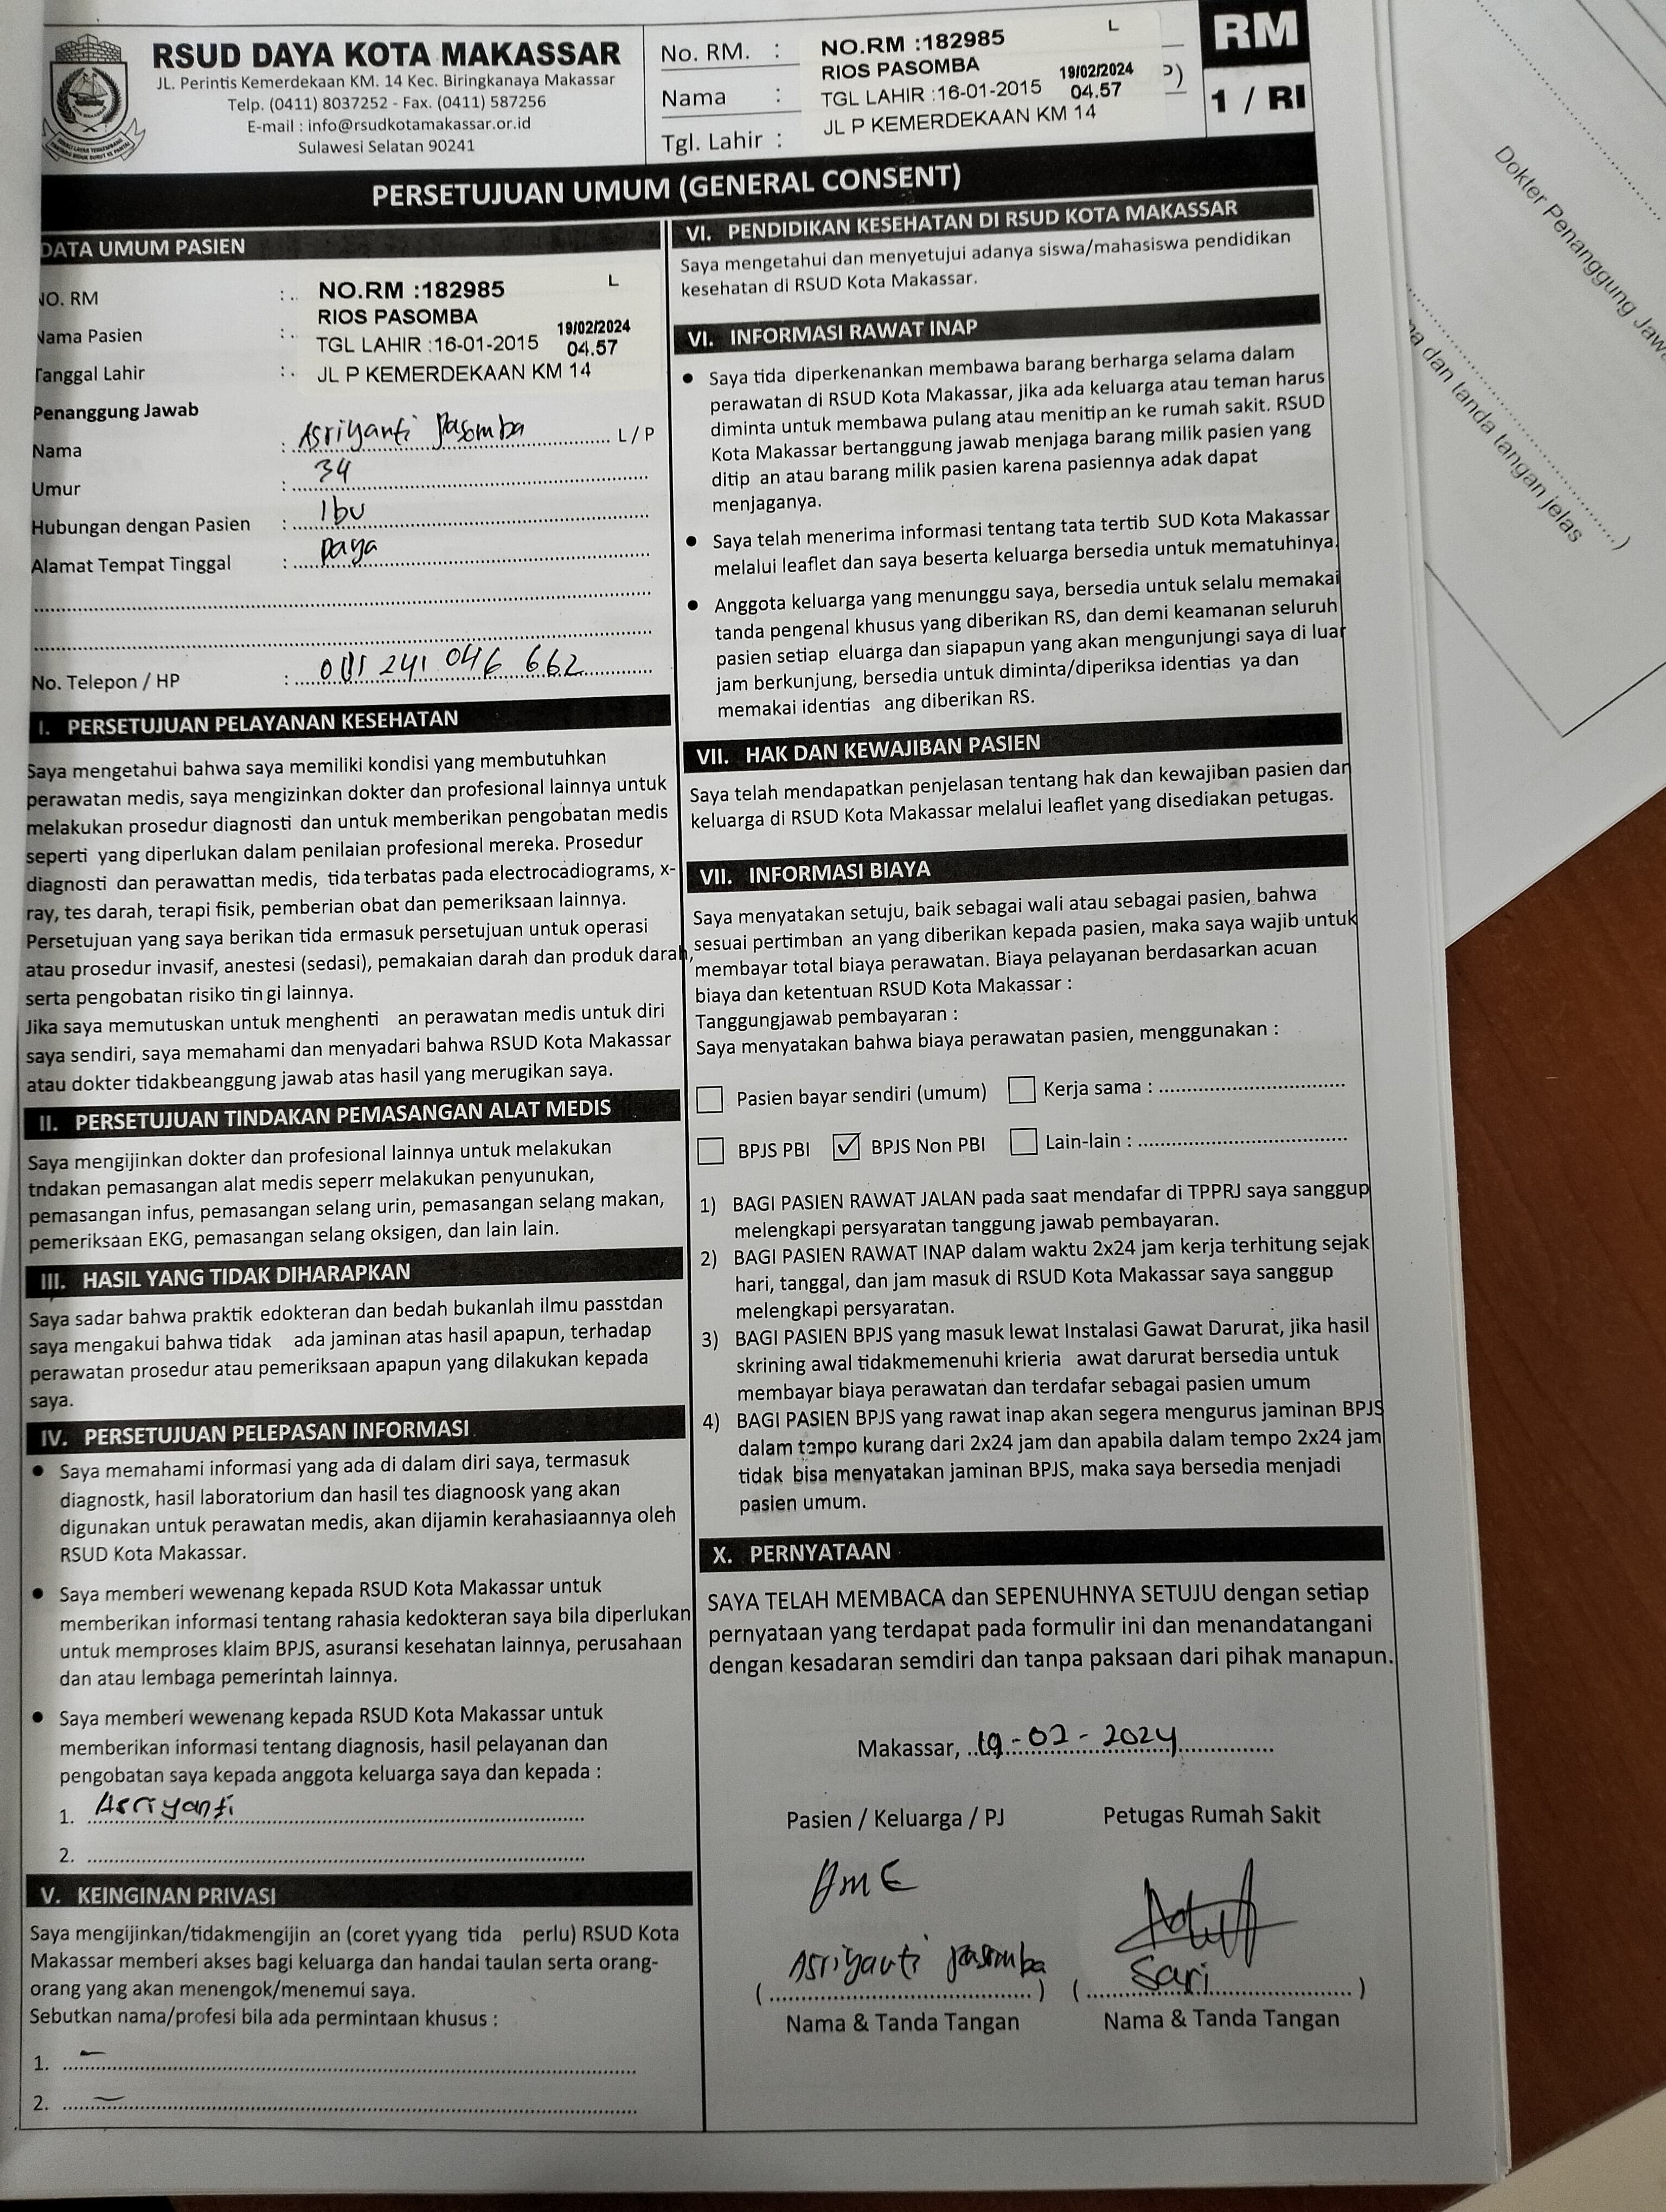 RSUD DAYA KOTA MAKASSAR
JL. Perintis Kemerdekaan KM. 14 Kec. Biringkanaya Makassar
Telp. (0411) 8037252 - Fax. (0411) 587256
E-mail : info@rsudkotamakassar.or.id
Sulawesi Selatan 90241
No. RM. :
Nama :
Tgl. Lahir :
NO.RM :182985 L
RIOS PASOMBA
TGL LAHIR :16-01-2015 19/02/2024 04.57
JL P KEMERDEKAAN KM 14
P)
RM
1 / RI
PERSETUJUAN UMUM (GENERAL CONSENT)
DATA UMUM PASIEN
NO. RM :..
Nama Pasien :.
Tanggal Lahir :.
NO.RM :182985 L
RIOS PASOMBA
TGL LAHIR :16-01-2015 19/02/2024 04.57
JL P KEMERDEKAAN KM 14
Penanggung Jawab
Nama : Asriyanti Pasomba L / P
Umur : 34
Hubungan dengan Pasien : Ibu
Alamat Tempat Tinggal : Daya
No. Telepon / HP : 241 046 662
I. PERSETUJUAN PELAYANAN KESEHATAN
Saya mengetahui bahwa saya memiliki kondisi yang membutuhkan
perawatan medis, saya mengizinkan dokter dan profesional lainnya untuk
melakukan prosedur diagnosti dan untuk memberikan pengobatan medis
seperti yang diperlukan dalam penilaian profesional mereka. Prosedur
diagnosti dan perawattan medis, tida terbatas pada electrocadiograms, x-
ray, tes darah, terapi fisik, pemberian obat dan pemeriksaan lainnya.
Persetujuan yang saya berikan tida ermasuk persetujuan untuk operasi
atau prosedur invasif, anestesi (sedasi), pemakaian darah dan produk darah,
serta pengobatan risiko tin gi lainnya.
Jika saya memutuskan untuk menghenti an perawatan medis untuk diri
saya sendiri, saya memahami dan menyadari bahwa RSUD Kota Makassar
atau dokter tidakbeanggung jawab atas hasil yang merugikan saya.
II. PERSETUJUAN TINDAKAN PEMASANGAN ALAT MEDIS
Saya mengijinkan dokter dan profesional lainnya untuk melakukan
tndakan pemasangan alat medis seperr melakukan penyunukan,
pemasangan infus, pemasangan selang urin, pemasangan selang makan,
pemeriksaan EKG, pemasangan selang oksigen, dan lain lain.
III. HASIL YANG TIDAK DIHARAPKAN
Saya sadar bahwa praktik edokteran dan bedah bukanlah ilmu passtdan
saya mengakui bahwa tidak ada jaminan atas hasil apapun, terhadap
perawatan prosedur atau pemeriksaan apapun yang dilakukan kepada
saya.
IV. PERSETUJUAN PELEPASAN INFORMASI
• Saya memahami informasi yang ada di dalam diri saya, termasuk
diagnostk, hasil laboratorium dan hasil tes diagnoosk yang akan
digunakan untuk perawatan medis, akan dijamin kerahasiaannya oleh
RSUD Kota Makassar.
• Saya memberi wewenang kepada RSUD Kota Makassar untuk
memberikan informasi tentang rahasia kedokteran saya bila diperlukan
untuk memproses klaim BPJS, asuransi kesehatan lainnya, perusahaan
dan atau lembaga pemerintah lainnya.
• Saya memberi wewenang kepada RSUD Kota Makassar untuk
memberikan informasi tentang diagnosis, hasil pelayanan dan
pengobatan saya kepada anggota keluarga saya dan kepada :
1. Asriyanti
2.
V. KEINGINAN PRIVASI
Saya mengijinkan/tidakmengijin an (coret yyang tida perlu) RSUD Kota
Makassar memberi akses bagi keluarga dan handai taulan serta orang-
orang yang akan menengok/menemui saya.
Sebutkan nama/profesi bila ada permintaan khusus :
1. -
2. -
VI. PENDIDIKAN KESEHATAN DI RSUD KOTA MAKASSAR
Saya mengetahui dan menyetujui adanya siswa/mahasiswa pendidikan
kesehatan di RSUD Kota Makassar.
VI. INFORMASI RAWAT INAP
• Saya tida diperkenankan membawa barang berharga selama dalam
perawatan di RSUD Kota Makassar, jika ada keluarga atau teman harus
diminta untuk membawa pulang atau menitip an ke rumah sakit. RSUD
Kota Makassar bertanggung jawab menjaga barang milik pasien yang
ditip an atau barang milik pasien karena pasiennya adak dapat
menjaganya.
• Saya telah menerima informasi tentang tata tertib SUD Kota Makassar
melalui leaflet dan saya beserta keluarga bersedia untuk mematuhinya.
• Anggota keluarga yang menunggu saya, bersedia untuk selalu memakai
tanda pengenal khusus yang diberikan RS, dan demi keamanan seluruh
pasien setiap eluarga dan siapapun yang akan mengunjungi saya di luar
jam berkunjung, bersedia untuk diminta/diperiksa identias ya dan
memakai identias ang diberikan RS.
VII. HAK DAN KEWAJIBAN PASIEN
Saya telah mendapatkan penjelasan tentang hak dan kewajiban pasien dan
keluarga di RSUD Kota Makassar melalui leaflet yang disediakan petugas.
VII. INFORMASI BIAYA
Saya menyatakan setuju, baik sebagai wali atau sebagai pasien, bahwa
sesuai pertimban an yang diberikan kepada pasien, maka saya wajib untuk
membayar total biaya perawatan. Biaya pelayanan berdasarkan acuan
biaya dan ketentuan RSUD Kota Makassar :
Tanggungjawab pembayaran :
Saya menyatakan bahwa biaya perawatan pasien, menggunakan :
☐ Pasien bayar sendiri (umum) ☐ Kerja sama :
☐ BPJS PBI ☑ BPJS Non PBI ☐ Lain-lain :
1) BAGI PASIEN RAWAT JALAN pada saat mendafar di TPPRJ saya sanggup
melengkapi persyaratan tanggung jawab pembayaran.
2) BAGI PASIEN RAWAT INAP dalam waktu 2x24 jam kerja terhitung sejak
hari, tanggal, dan jam masuk di RSUD Kota Makassar saya sanggup
melengkapi persyaratan.
3) BAGI PASIEN BPJS yang masuk lewat Instalasi Gawat Darurat, jika hasil
skrining awal tidakmemenuhi krieria awat darurat bersedia untuk
membayar biaya perawatan dan terdafar sebagai pasien umum
4) BAGI PASIEN BPJS yang rawat inap akan segera mengurus jaminan BPJS
dalam tempo kurang dari 2x24 jam dan apabila dalam tempo 2x24 jam
tidak bisa menyatakan jaminan BPJS, maka saya bersedia menjadi
pasien umum.
X. PERNYATAAN
SAYA TELAH MEMBACA dan SEPENUHNYA SETUJU dengan setiap
pernyataan yang terdapat pada formulir ini dan menandatangani
dengan kesadaran semdiri dan tanpa paksaan dari pihak manapun.
Makassar, 19-02-2024
Pasien / Keluarga / PJ Petugas Rumah Sakit
Asriyanti Pasomba Sari
(..........) (..........)
Nama & Tanda Tangan Nama & Tanda Tangan
Dokter Penanggung Jawa
a dan tanda tangan jelas